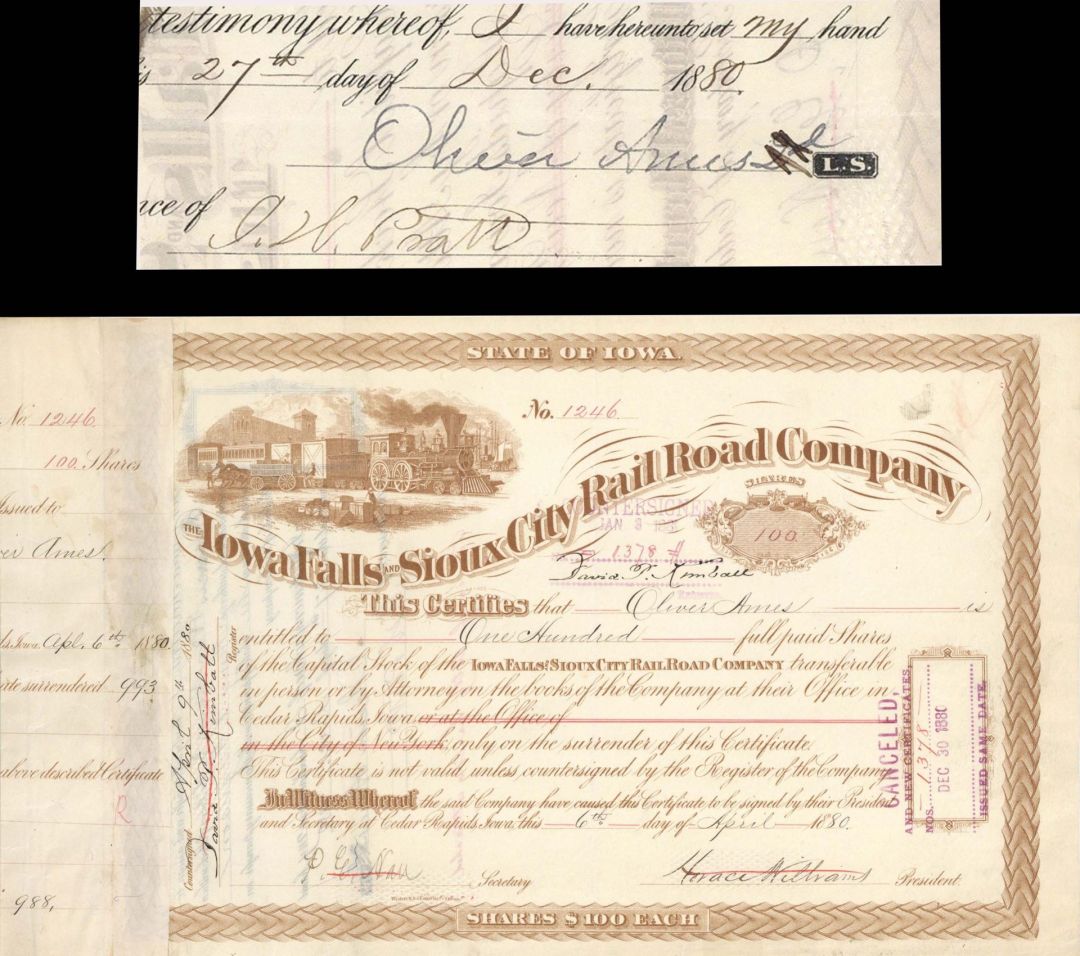 testimony whereof, I have hereunto set my hand
27th day of Dec. 1880.
Oliver Ames 2d
L.S.
nce of J. W. Pratt
STATE OF IOWA.
No. 1246
100 Shares
Issued to
ver Ames
Iowa Apl. 6th 1880
surrendered 993
above described Certificate
R
988,
No. 1246
THE IOWA FALLS AND SIOUX CITY RAIL ROAD COMPANY
SHARES
100
COUNTERSIGNED
JAN 3
1378
David P. Kimball
This Certifies that Oliver Ames is
entitled to One Hundred full paid Shares
of the Capital Stock of the IOWA FALLS & SIOUX CITY RAIL ROAD COMPANY transferable
in person or by Attorney on the books of the Company at their Office in
Cedar Rapids, Iowa or at the Office of
in the City of New York, only on the surrender of this Certificate.
This Certificate is not valid, unless countersigned by the Register of the Company.
In Witness Whereof the said Company have caused this Certificate to be signed by their President
and Secretary at Cedar Rapids, Iowa, this 6th day of April 1880.
Secretary
Horace Williams President.
Countersigned April 9th 1880
David P. Kimball Register
CANCELED,
AND NEW CERTIFICATES
NOS. 1378
DEC 30 1880
ISSUED SAME DATE.
SHARES $100 EACH